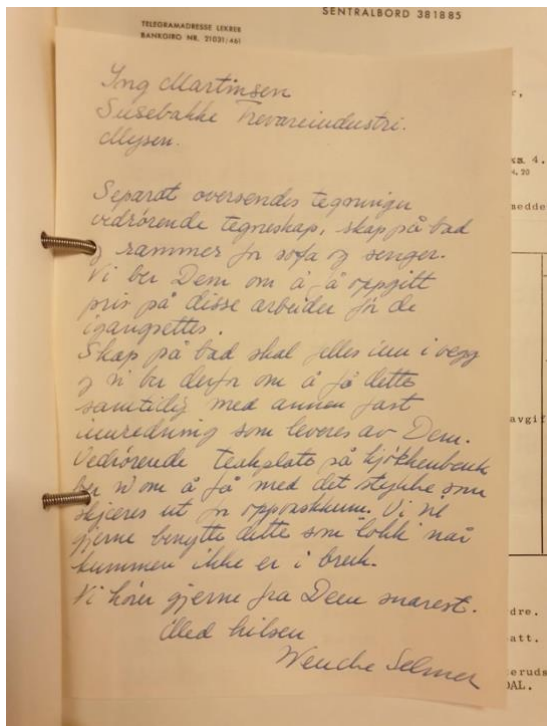 SENTRALBORD 381885
TELEGRAMADRESSE LEKREB
BANKGIRO NR. 21031/461
Ing Martinsen
Susebakke Trevareindustri.
Mysen.
Separat oversendes tegninger
vedrörende tegneskap, skap på bad
og rammer for sofa og senger.
Vi ber Dem om å få oppgitt
pris på disse arbeider för de
igangsettes.
Skap på bad skal felles inn i vegg
og vi ber derfor om å få dette
samtidig med annen fast
innredning som leveres av Dem.
Vedrörende teakplate på kjökkenbenk
ber vi om å få med det stykke som
skjæres ut for oppvaskkum. Vi vil
gjerne benytte dette som "lokk" når
kummen ikke er i bruk.
Vi hörer gjerne fra Dem snarest.
Med hilsen
Wenche Selmer
r,
ka 4.
4.20
medde
avgif
dre.
att.
eruds
DAL.